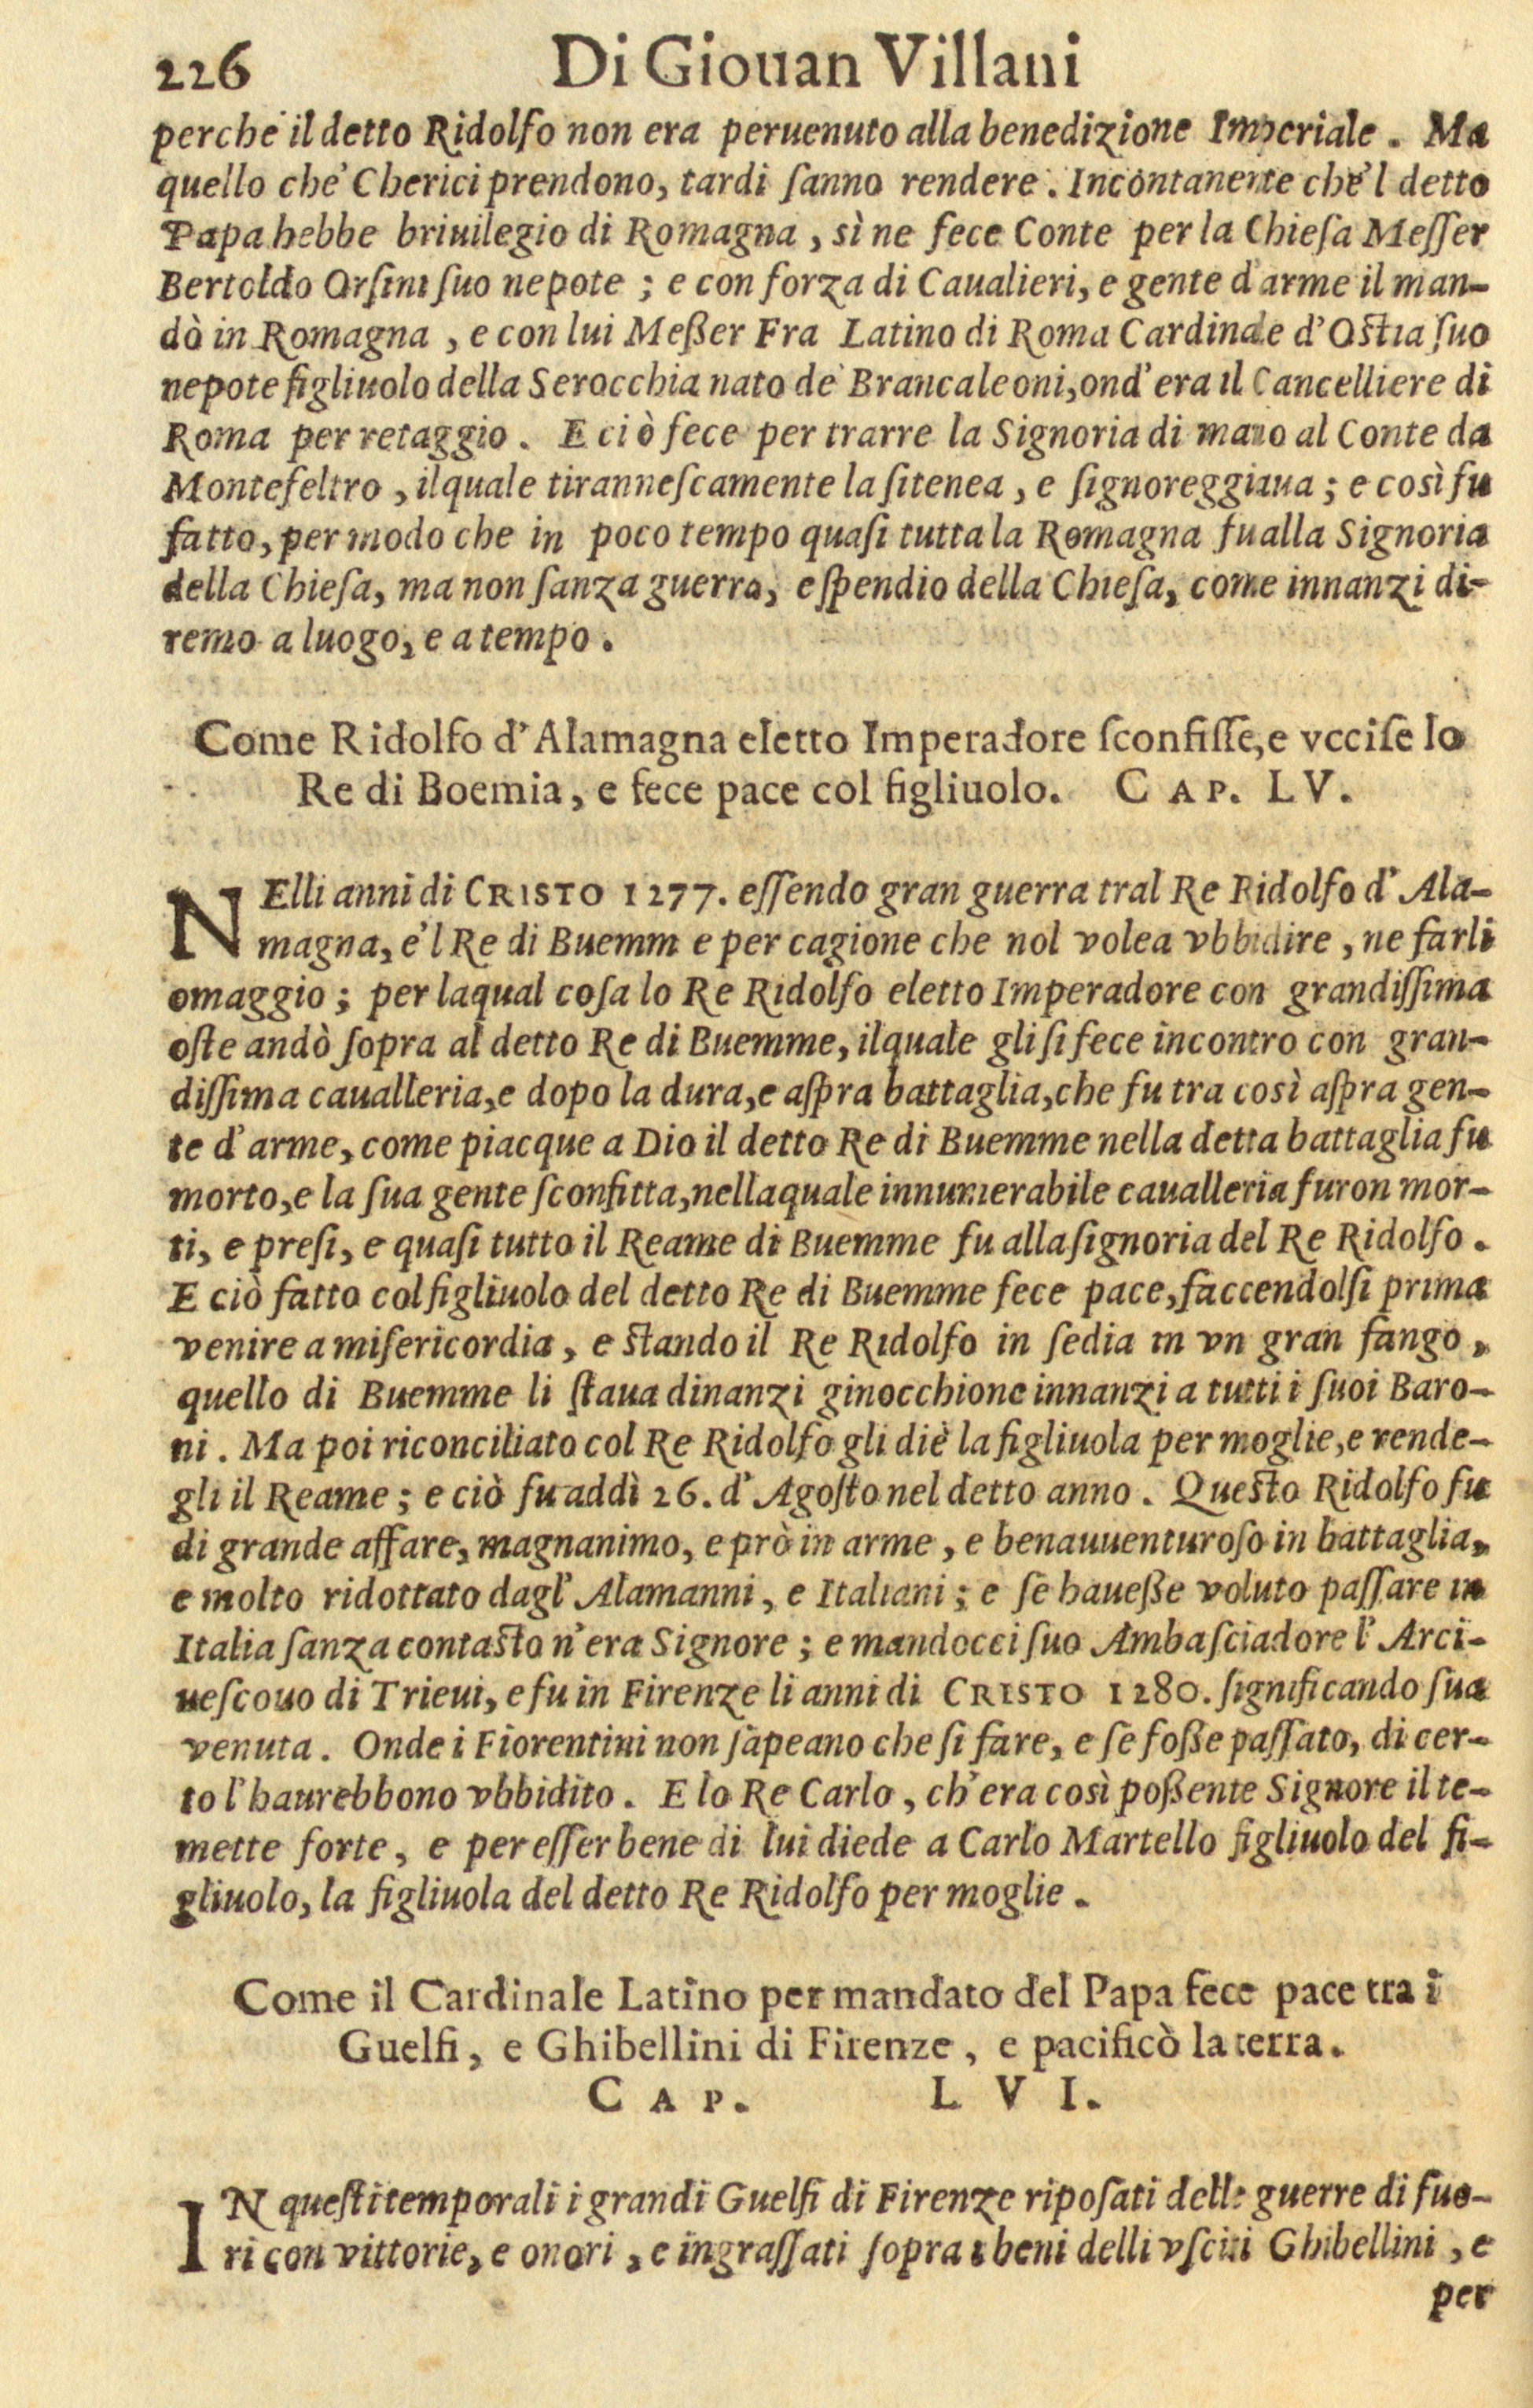 226 Di Giouan Villani
perche il detto Ridolfo non era peruenuto alla benedizione Imperiale. Ma
quello che' Cherici prendono, tardi ſanno rendere. Incontanente che'l detto
Papa hebbe briuilegio di Romagna, sì ne fece Conte per la Chieſa Meſſer
Bertoldo Orſini ſuo nepote; e con forza di Caualieri, e gente d'arme il man-
dò in Romagna, e con lui Meßer Fra Latino di Roma Cardinale d'Oſtia ſuo
nepote figliuolo della Serocchia nato de' Brancaleoni, ond'era il Cancelliere di
Roma per retaggio. E ciò fece per trarre la Signoria di mano al Conte da
Montefeltro, ilquale tiranneſcamente la ſi tenea, e ſignoreggiaua; e così fu
fatto, per modo che in poco tempo quaſi tutta la Romagna fu alla Signoria
della Chieſa, ma non ſanza guerra, e ſpendio della Chieſa, come innanzi di-
remo a luogo, e a tempo.
Come Ridolfo d'Alamagna eletto Imperadore ſconfiſſe, e vcciſe lo
Re di Boemia, e fece pace col figliuolo. CAP. LV.
NElli anni di CRISTO 1277. eſſendo gran guerra tral Re Ridolfo d'Ala-
magna, e'l Re di Buemm e per cagione che nol volea vbbidire, ne farli
omaggio; per laqual coſa lo Re Ridolfo eletto Imperadore con grandiſſima
oſte andò ſopra al detto Re di Buemme, ilquale gli ſi fece incontro con gran-
diſſima caualleria, e dopo la dura, e aſpra battaglia, che fu tra così aſpra gen-
te d'arme, come piacque a Dio il detto Re di Buemme nella detta battaglia fu
morto, e la ſua gente ſconfitta, nellaquale innumerabile caualleria furon mor-
ti, e preſi, e quaſi tutto il Reame di Buemme fu alla ſignoria del Re Ridolfo.
E ciò fatto col figliuolo del detto Re di Buemme fece pace, faccendolſi prima
venire a miſericordia, e ſtando il Re Ridolfo in ſedia in vn gran fango,
quello di Buemme li ſtaua dinanzi ginocchione innanzi a tutti i ſuoi Baro-
ni. Ma poi riconciliato col Re Ridolfo gli diè la figliuola per moglie, e rende-
gli il Reame; e ciò fu addì 26. d'Agoſto nel detto anno. Queſto Ridolfo fu
di grande affare, magnanimo, e prò in arme, e benauuenturoſo in battaglia,
e molto ridottato dagl'Alamanni, e Italiani; e ſe haueße voluto paſſare in
Italia ſanza contaſto n'era Signore; e mandocci ſuo Ambaſciadore l'Arci-
ueſcouo di Trieui, e fu in Firenze li anni di CRISTO 1280. ſignificando ſua
venuta. Onde i Fiorentini non ſapeano che ſi fare, e ſe foße paſſato, di cer-
to l'haurebbono vbbidito. E lo Re Carlo, ch'era così poßente Signore il te-
mette forte, e per eſſer bene di lui diede a Carlo Martello figliuolo del fi-
gliuolo, la figliuola del detto Re Ridolfo per moglie.
Come il Cardinale Latino per mandato del Papa fece pace tra i
Guelfi, e Ghibellini di Firenze, e pacificò la terra.
CAP. LVI.
IN queſti temporali i grandi Guelfi di Firenze ripoſati delle guerre di fuo-
ri con vittorie, e onori, e ingraſſati ſopra i beni delli vſciti Ghibellini, e
per